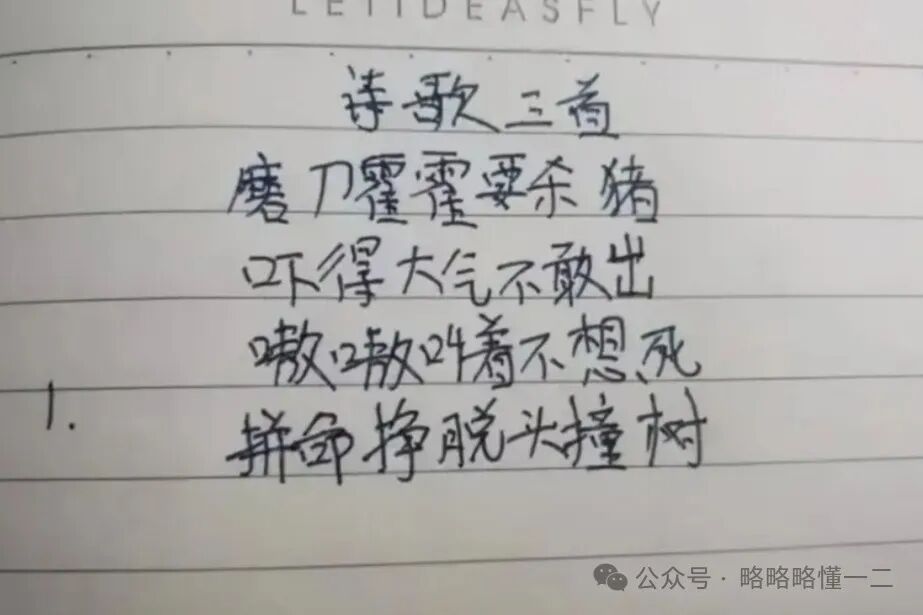 LETIDEASFLY
诗歌三首
磨刀霍霍要杀猪
吓得大气不敢出
嗷嗷叫着不想死
1.
拼命挣脱头撞树
公众号·略略略懂一二